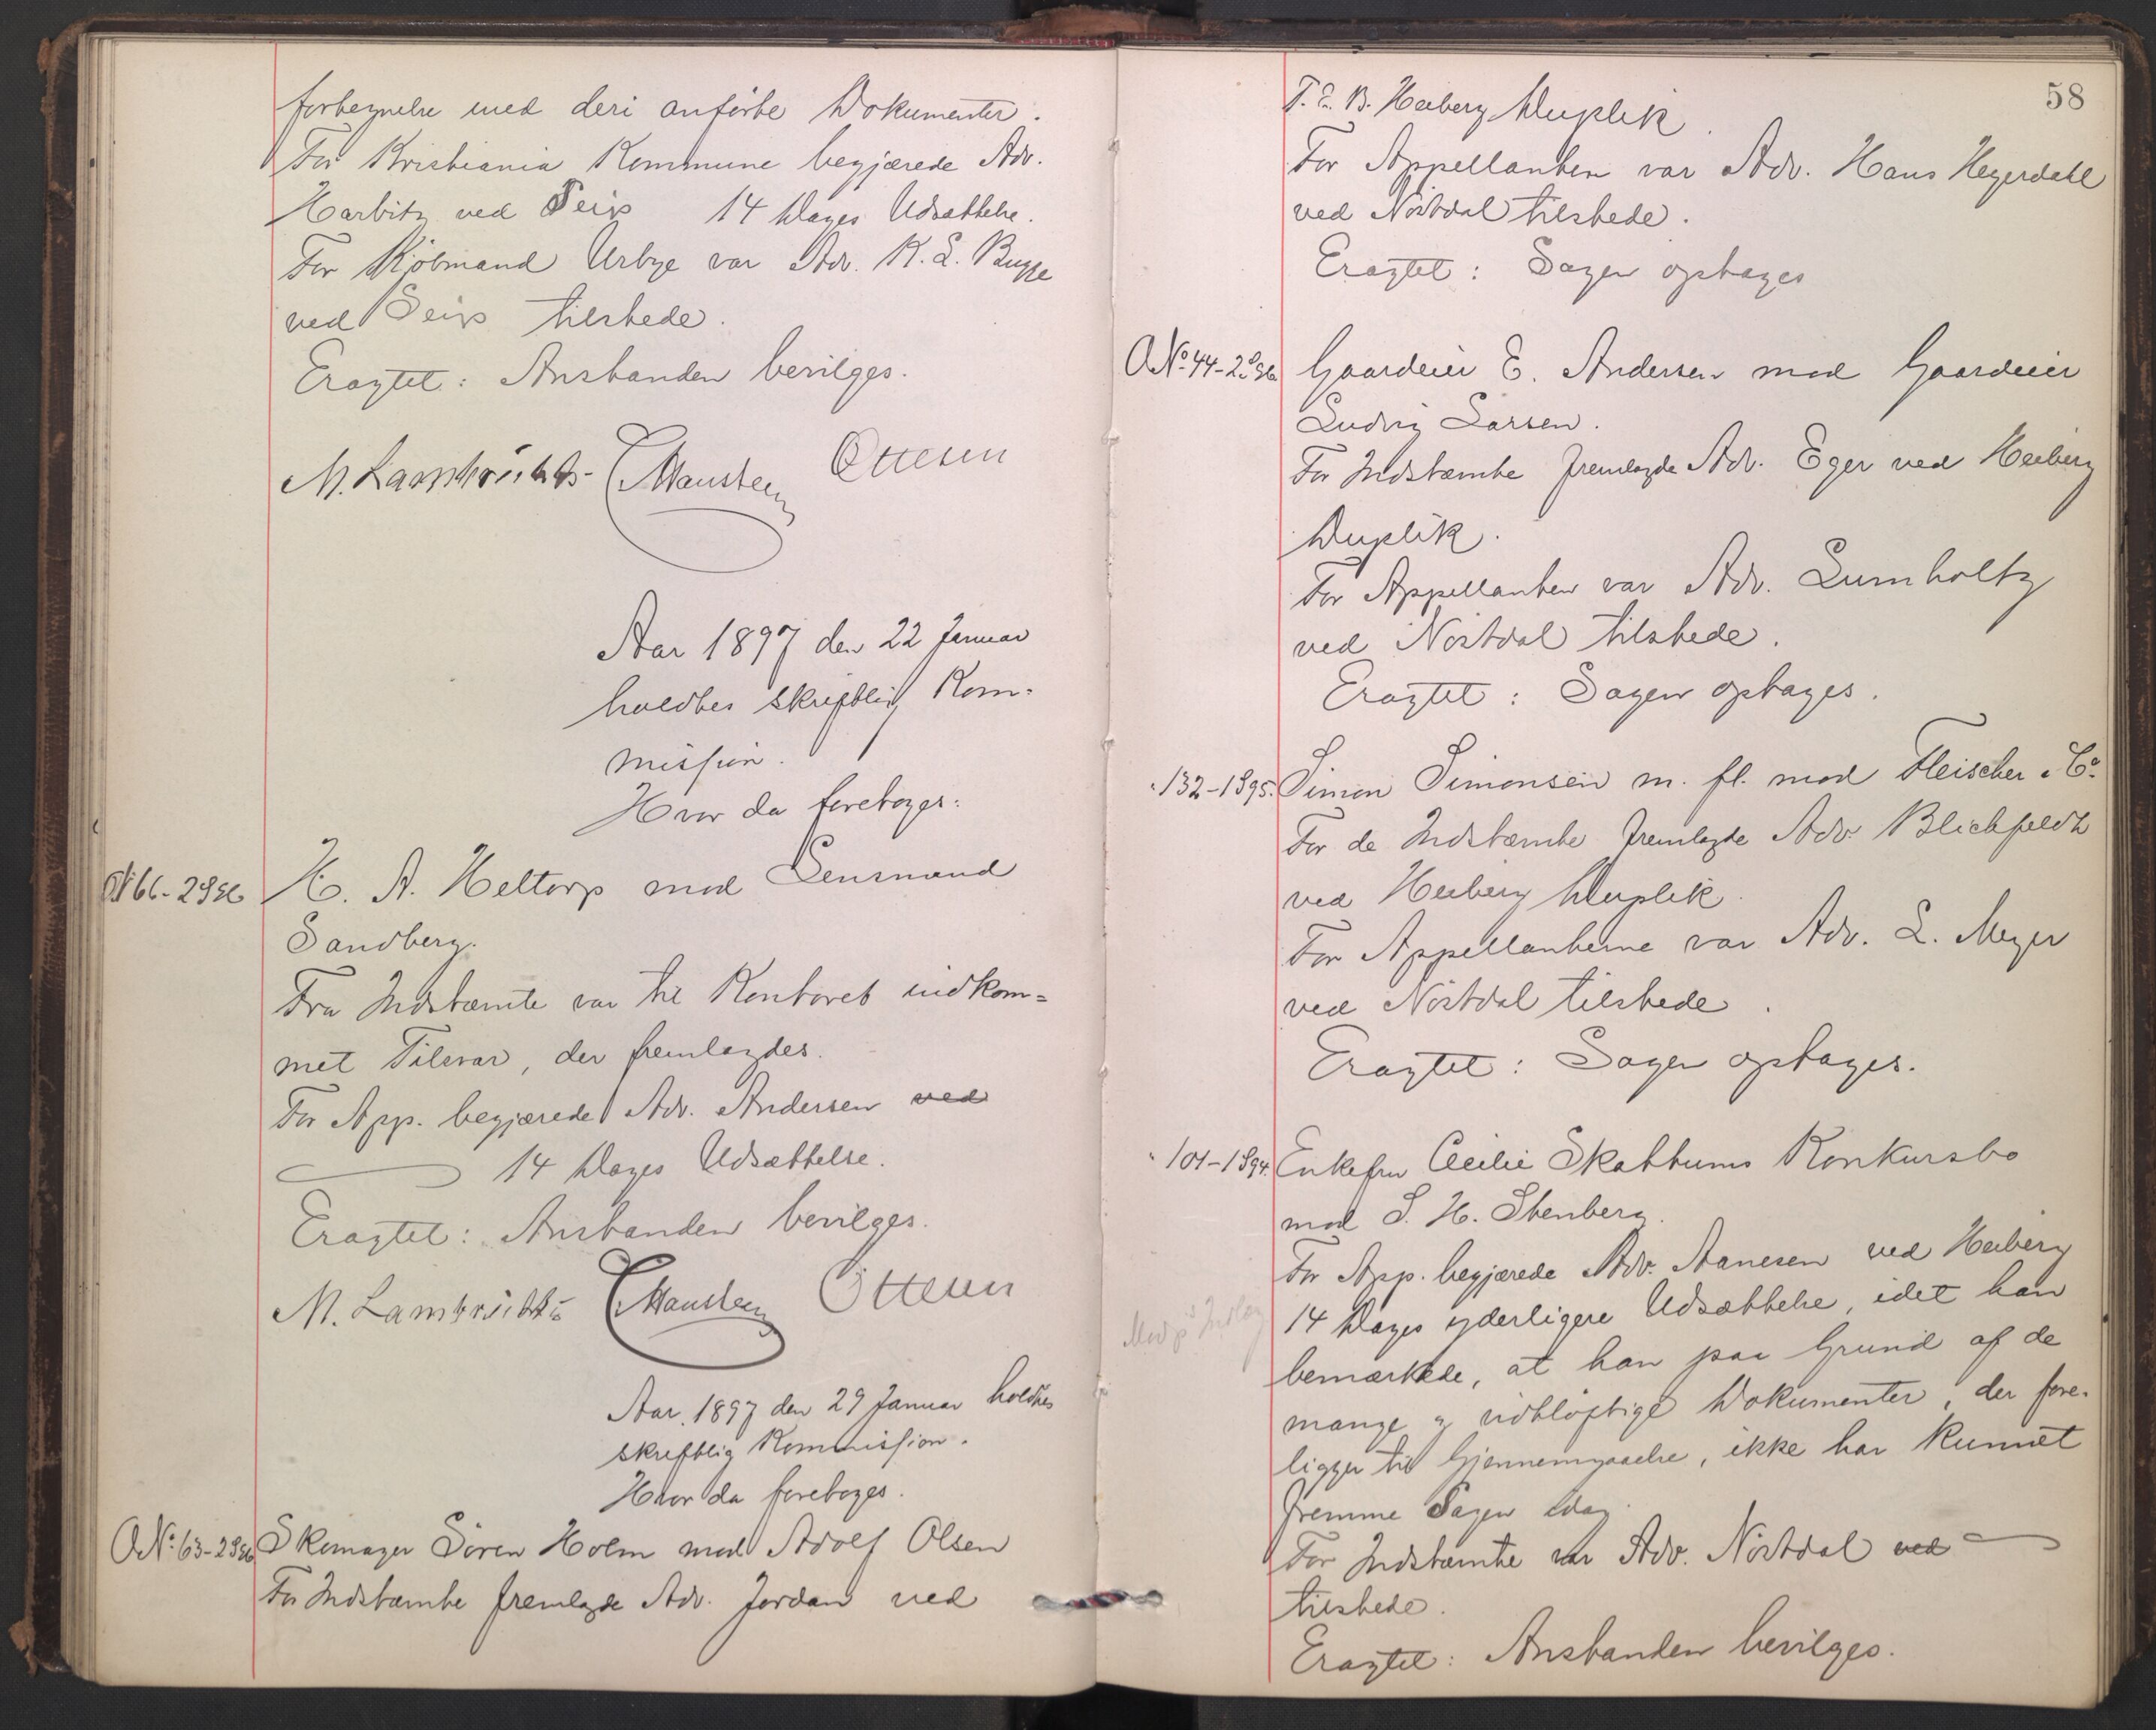 fortegnelse med deri anførte Dokumenter.
For Kristiania Kommune begjærede Adv.
Harbitz ved Seip 14 Dages Udsættelse.
For Kjøbmand Urbye var Adv. K. L. Bugge
ved Seip tilstede.
Eragtet: Anstanden bevilges.
M. Lambrechts CHansteen Ottesen
Aar 1897 den 22 Januar
holdtes skriftlig Kom-
mission.
Hvor da foretoges:
No 66-2 S 96 H. A. Heltorp mod Lensmand
Sandberg.
Fra Indstævnte var til Kontoret indkom=
met Tilsvar, der fremlagdes.
For App. begjærede Adv. Andersen ved
14 Dages Udsættelse.
Eragtet: Anstanden bevilges.
M. Lambrechts CHansteen Ottesen
Aar 1897 den 29 Januar holdtes
skriftlig Kommission.
Hvor da foretoges.
A No 63-2 S 96 Skomager Sören Holm mod Adolf Olsen
For Indstævnte fremlagde Adv. Jordan ved
58
T. E. B. Heiberg Duplik.
For Appellanten var Adv. Hans Heyerdahl
ved Nöstdal tilstede.
Eragtet: Sagen optages
A No 44-2 S 96 Gaardeier E. Andersen mod Gaardeier
Ludvig Larsen.
For Indstævnte fremlagde Adv. Eger ved Heiberg
Duplik.
For Appellanten var Adv. Lumholtz
ved Nöstdal tilstede.
Eragtet: Sagen optages.
" 132-1 S 95. Simon Simonsen m. fl. mod Fleischer & Co.
For de Indstævnte fremlagde Adv. Blichfeldt
ved Heiberg Duplik.
For Appellanterne var Adv. L. Meyer
ved Nöstdal tilstede.
Eragtet: Sagen optages.
" 101-1 S 94. Enkefru Cecilie Skattums Konkursbo
mod S. H. Stenberg.
For App. begjærede Adv. Aanesen ved Heiberg
14 Dages yderligere Udsættelse, idet han
bemærkede, at han paa Grund af de
mange og vidløftige Dokumenter, der fore-
ligger til Gjennemgaaelse, ikke har kunnet
fremme Sagen idag.
For Indstævnte var Adv. Nöstdal ved
tilstede.
Eragtet: Anstanden bevilges.